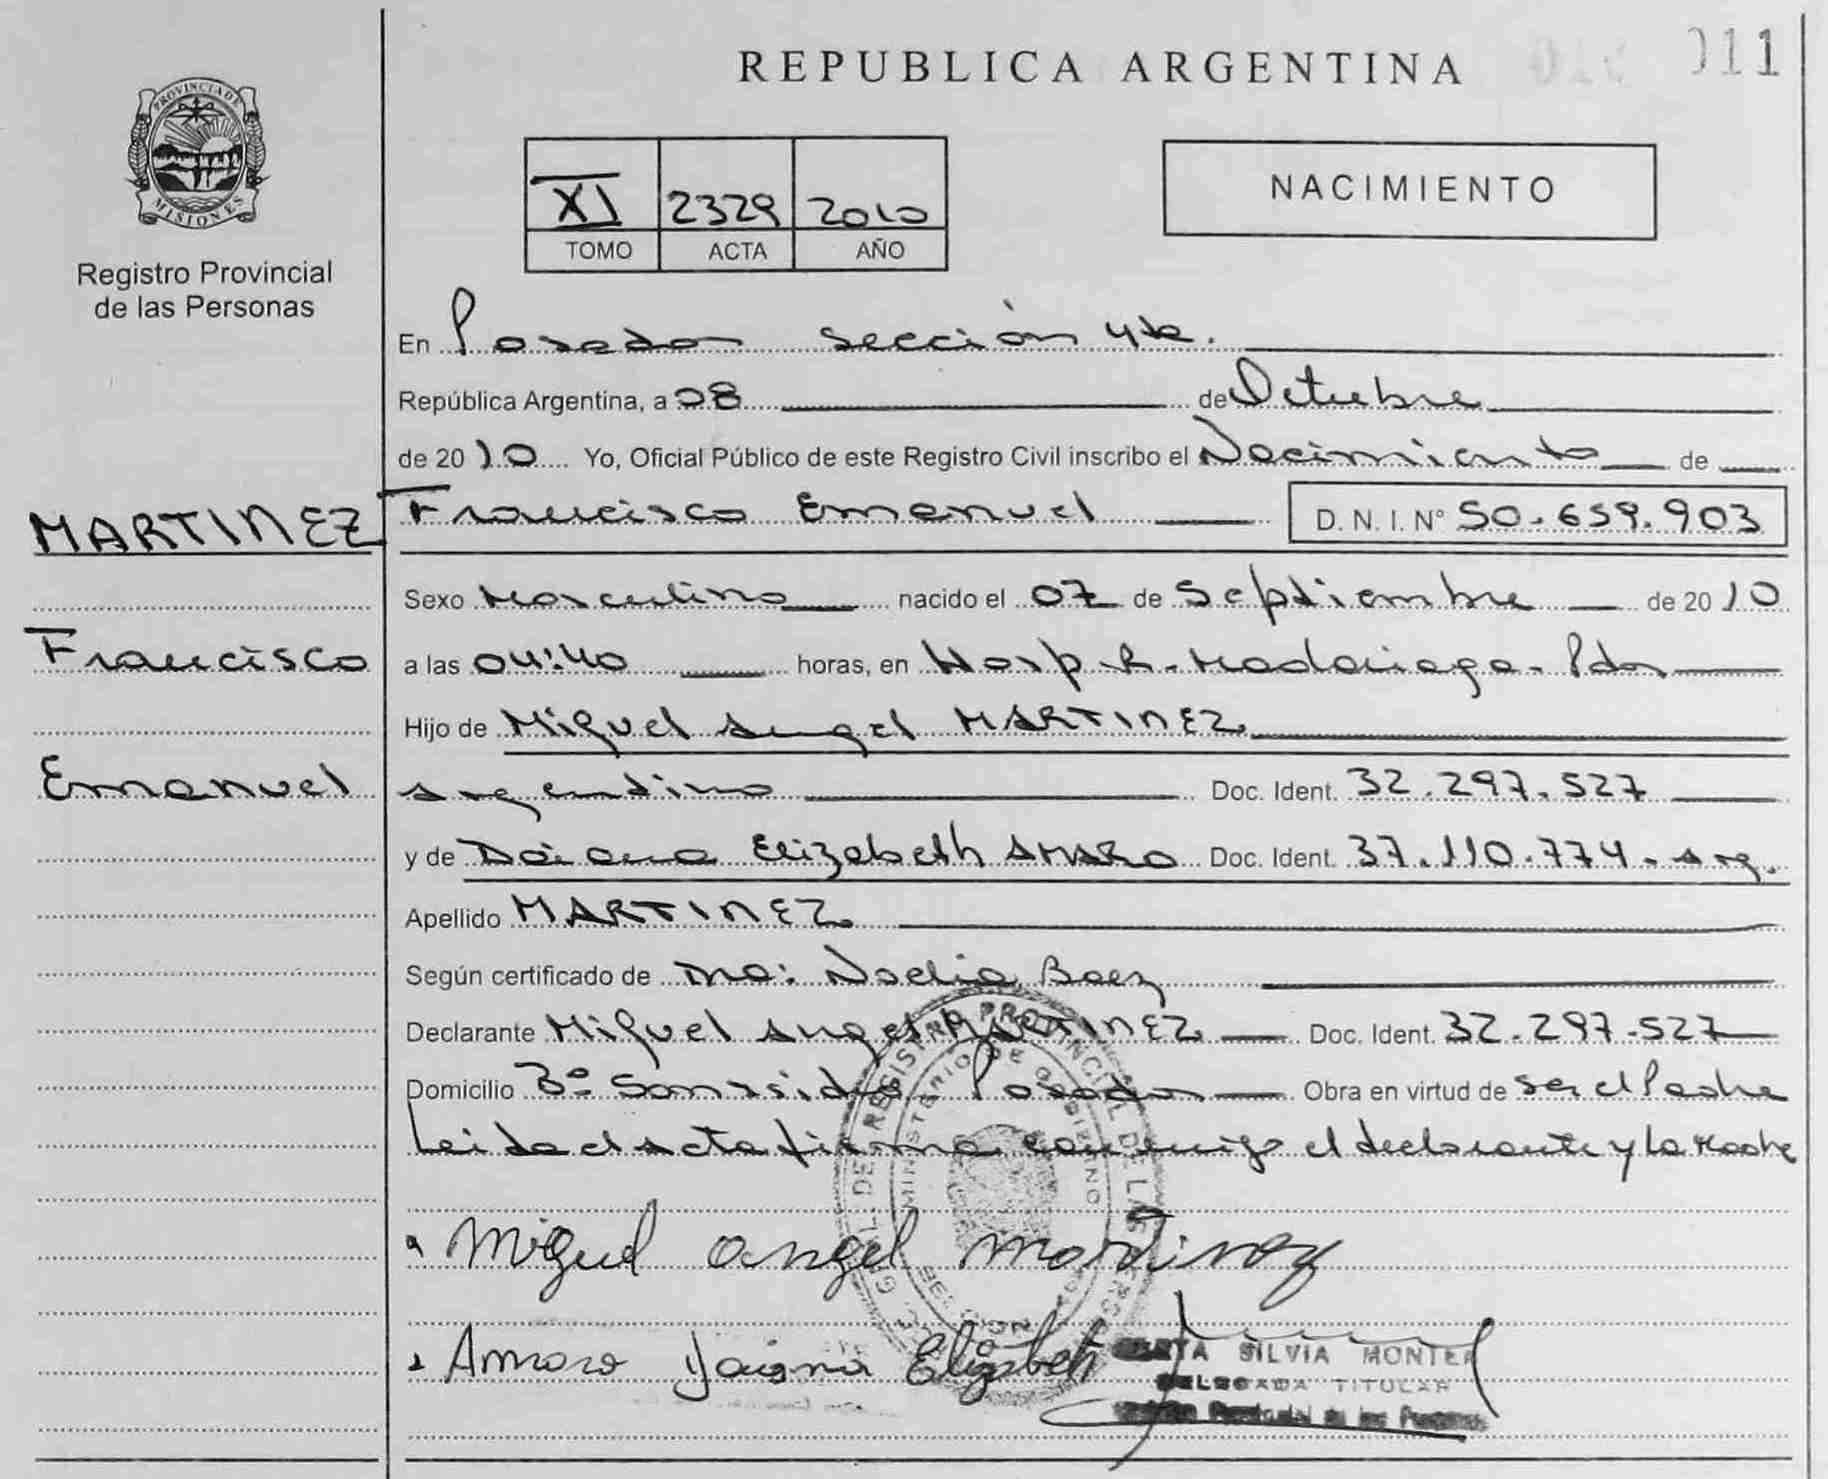 REPUBLICA ARGENTINA
011
PROVINCIA DE MISIONES
Registro Provincial
de las Personas
XI 2329 2010
TOMO ACTA AÑO
NACIMIENTO
En Posadas sección 4ta.
República Argentina, a 08 de Octubre
de 2010 Yo, Oficial Público de este Registro Civil inscribo el Nacimiento de
MARTINEZ Francisco Emanuel D.N.I. Nº 50.659.903
Sexo Masculino nacido el 07 de Septiembre de 2010
Francisco a las 04:40 horas, en Hosp. R. Madariaga - Pdas
Hijo de Miguel Angel MARTINEZ
Emanuel argentino Doc. Ident. 32.297.527
y de Daiana Elizabeth AMARO Doc. Ident. 37.110.774 - arg.
Apellido MARTINEZ
Según certificado de Dra: Noelia Baez
Declarante Miguel Angel MARTINEZ Doc. Ident. 32.297.527
Domicilio Bº San Isidro Posadas Obra en virtud de ser el Padre
Leida el acta firma conmigo el declarante y la Madre
Miguel angel martinez
Amaro Daiana Elizabeth
SILVIA MONTER
DELEGADA TITULAR
REGISTRO PROVINCIAL DE LAS PERSONAS
MINISTERIO DE GOBIERNO